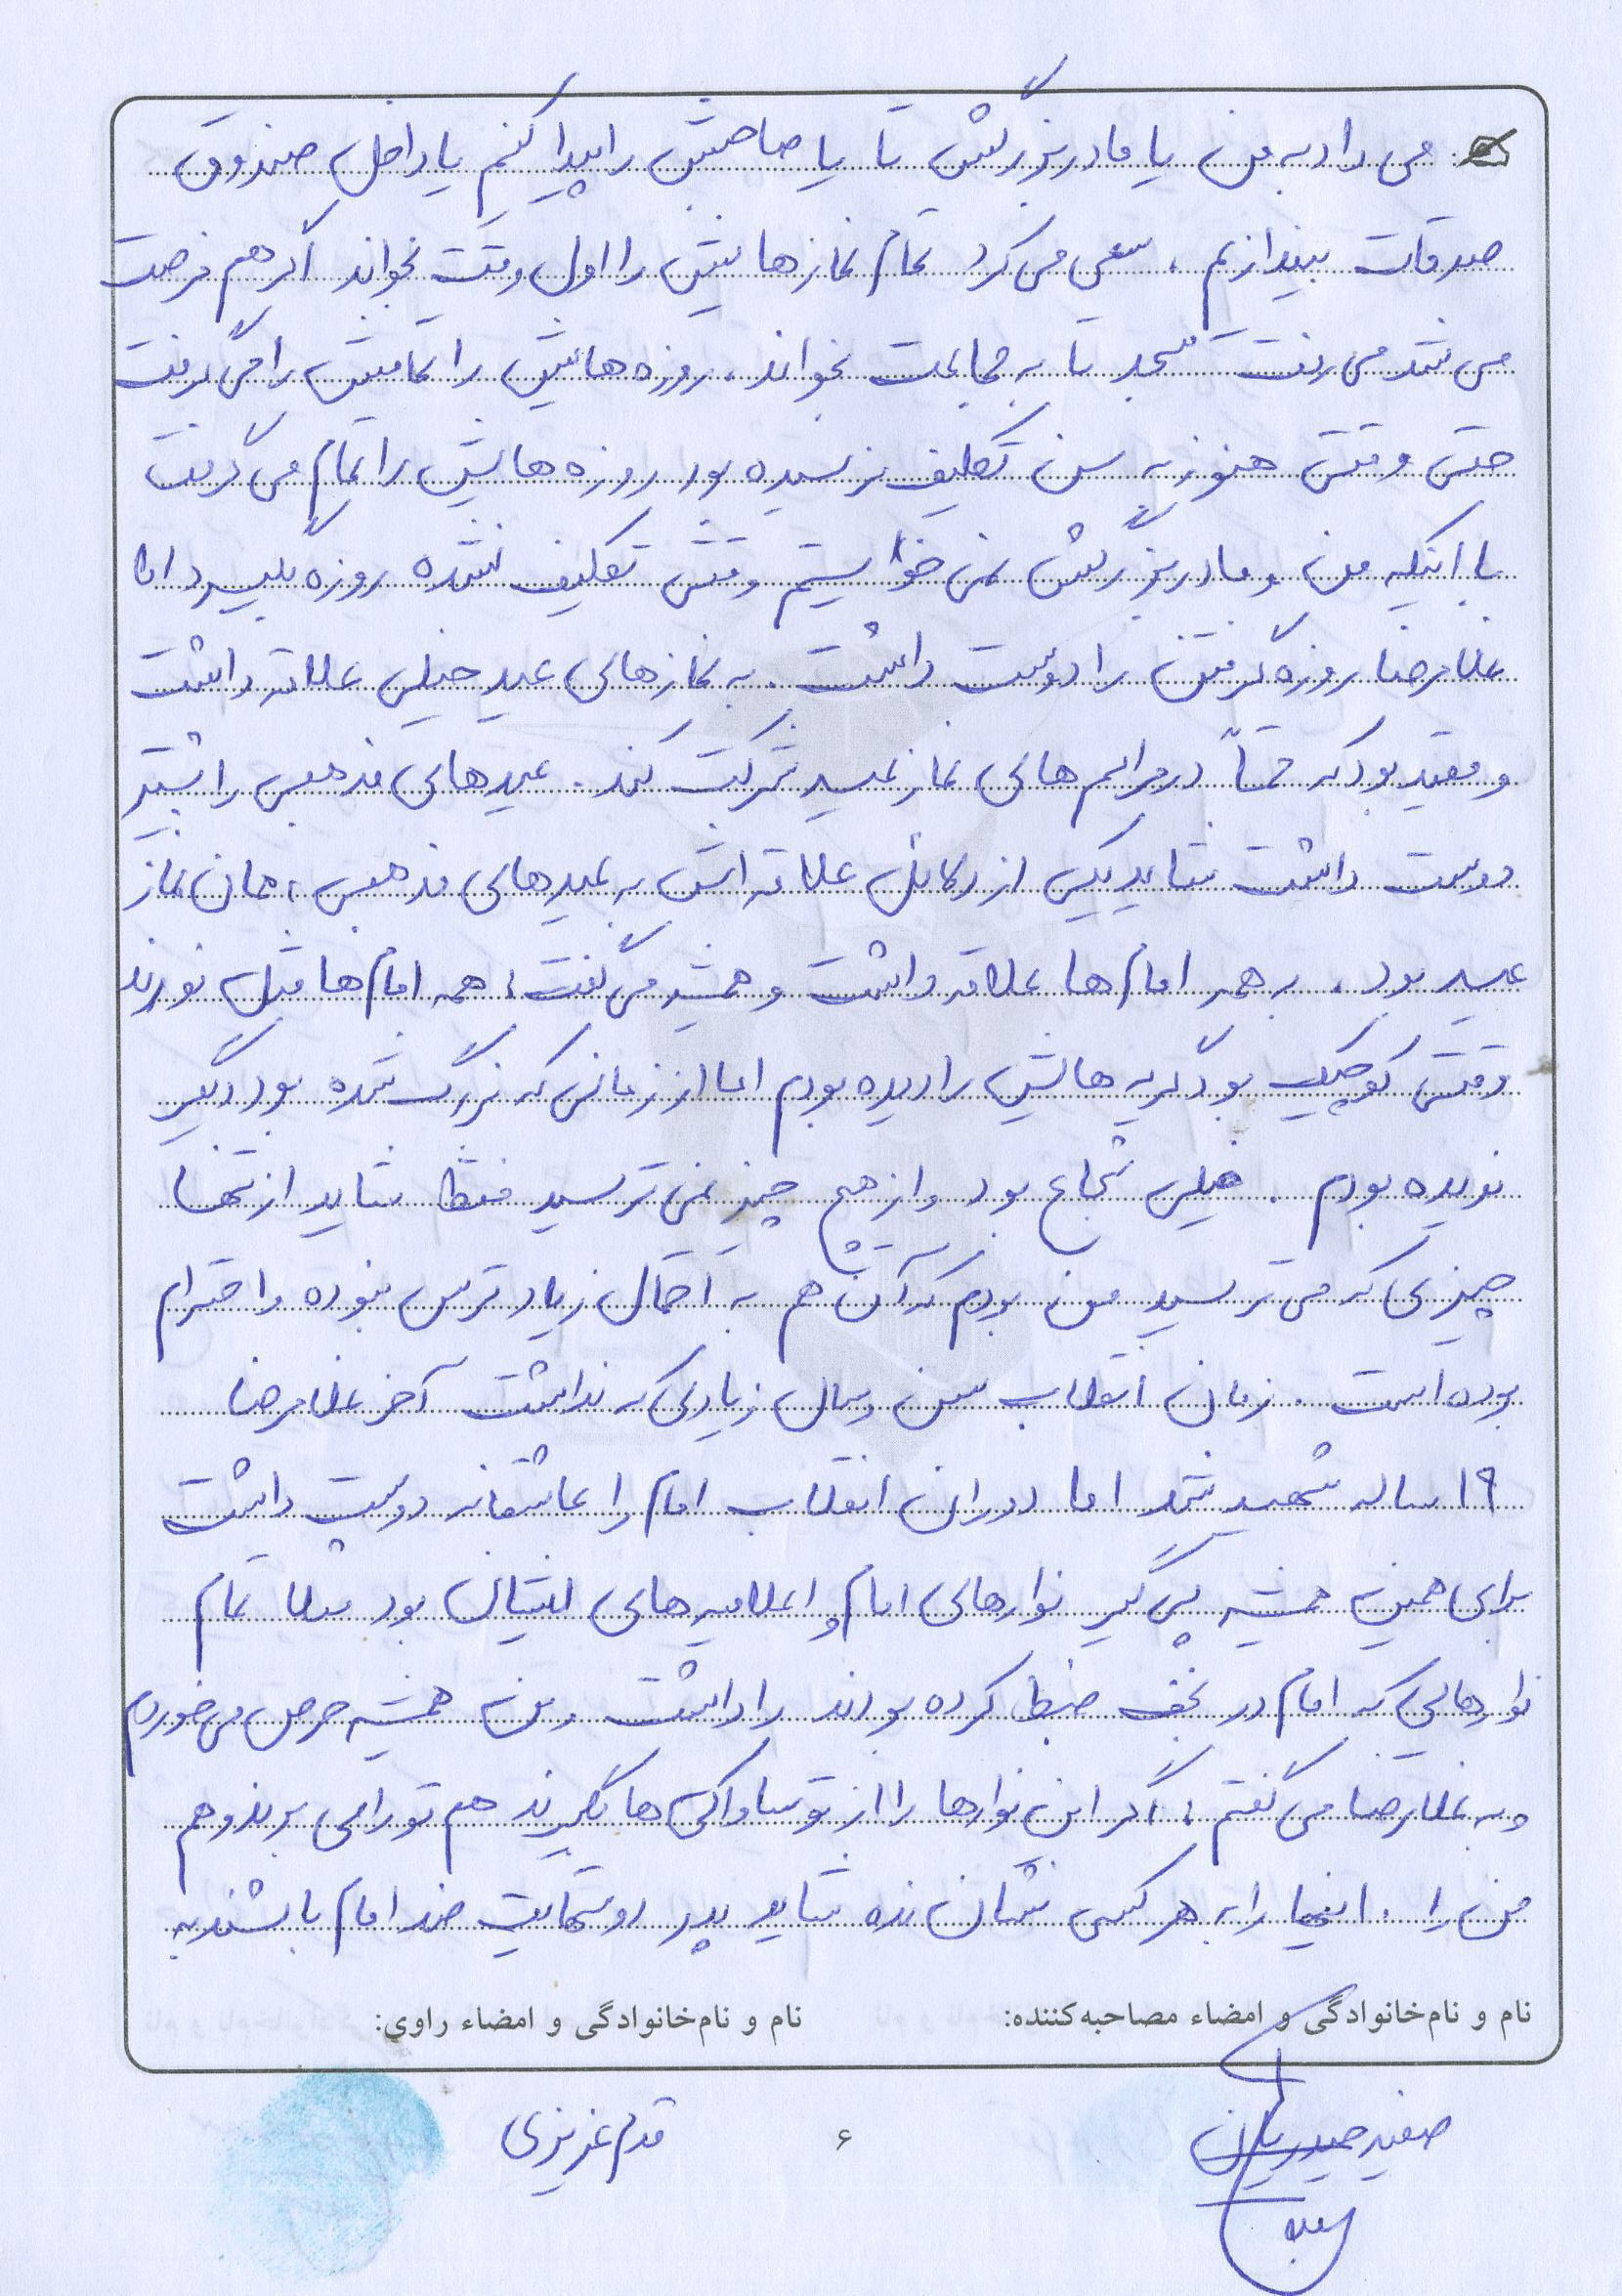 می داد به من یا مادربزرگش تا یا صاحبش را پیدا کنم یا داخل صندوق
صدقات بیندازم ، سعی می کرد تمام نمازهایش را اول وقت بخواند اگر هم فرصت
می شد می رفت مسجد تا به جماعت بخواند ، روزه هایش را تمامش را می گرفت
حتی وقتی هنوز به سن تکلیف نرسیده بود روزه هایش را تمام می گرفت
با اینکه من و مادربزرگش نمی خواستیم وقتی تکلیف نشده روزه بگیرد اما
غلامرضا روزه گرفتن را دوست داشت . به نمازهای عید خیلی علاقه داشت
و مقید بود که حتماً در مراسم های نماز عید شرکت کند . عیدهای مذهبی را بیشتر
دوست داشت شاید یکی از دلائل علاقه اش به عیدهای مذهبی ، همان نماز
عید بود . به همه امام ها علاقه داشت و همیشه می گفت : همه امام ها مثل نورند
وقتی کوچک بود گریه هایش را دیده بودم اما از زمانی که بزرگ شده بود دیگر
ندیده بودم . خیلی شجاع بود و از هیچ چیز نمی ترسید فقط شاید از تنها
چیزی که می ترسید من بودم که آن هم به احتمال زیاد ترس نبوده و احترام
بوده است . زمان انقلاب سن و سال زیادی که نداشت آخر غلامرضا
۱۹ ساله شهید شد اما دوران انقلاب امام را عاشقانه دوست داشت
برای همین همیشه پی گیر نوارهای امام و اعلامیه های ایشان بود مثلا تمام
نوارهایی که امام در نجف ضبط کرده بودند را داشت و من همیشه حرص می خوردم
و به غلامرضا می گفتم : اگر این نوارها را از تو ساواکی ها بگیرند هم تو را می برند و هم
من را . اینها را به هر کسی نشان نده شاید پدر دوستهایت ضد امام باشند به
نام و نام‌خانوادگی و امضاء مصاحبه‌کننده: نام و نام‌خانوادگی و امضاء راوی:
صفیه حیدریان ۶ قدم عزیزی